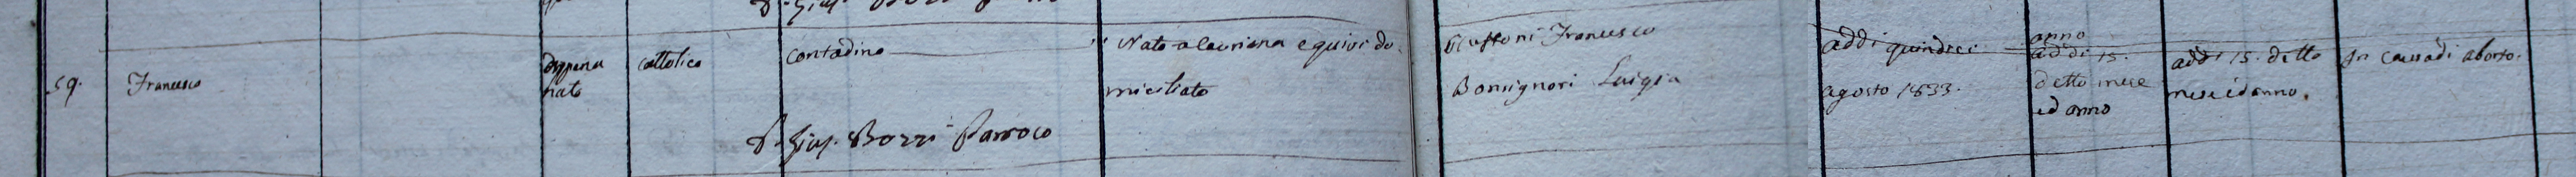 59.
Francesco
appena
nato
cattolico
Contadino
Nato a e quivi do-
miciliato
Francesco
Bonsignori Luigia
addi quindeci
agosto 1833.
anno
addi 15.
detto mese
ed anno
addi 15. detto
mese ed anno.
In causa di aborto.
P. Gius. Bozzi Parroco